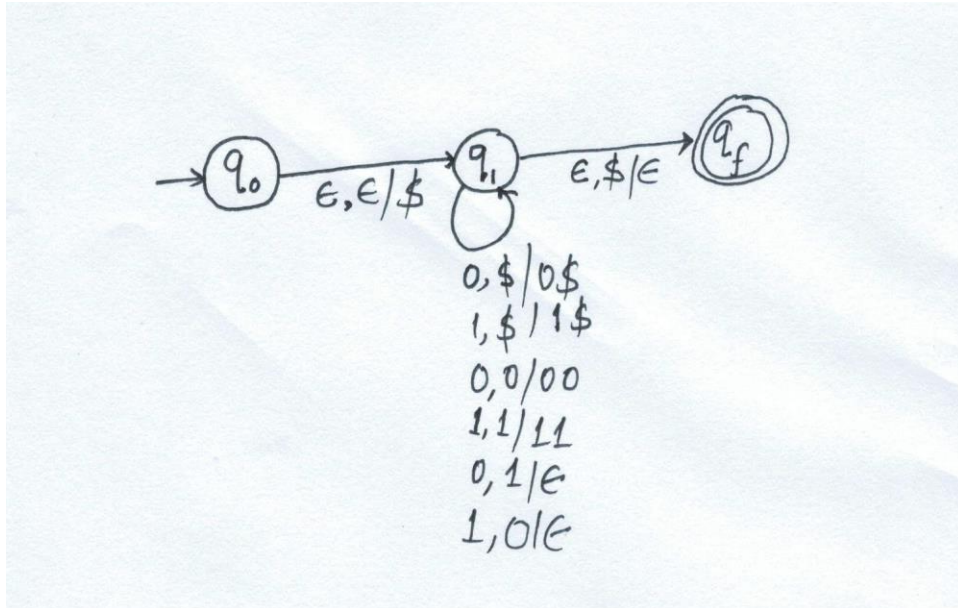 q₀
ϵ,ϵ/$
q₁
ϵ,$/ϵ
q_f
0,$/0$
1,$/1$
0,0/00
1,1/11
0,1/ϵ
1,0/ϵ